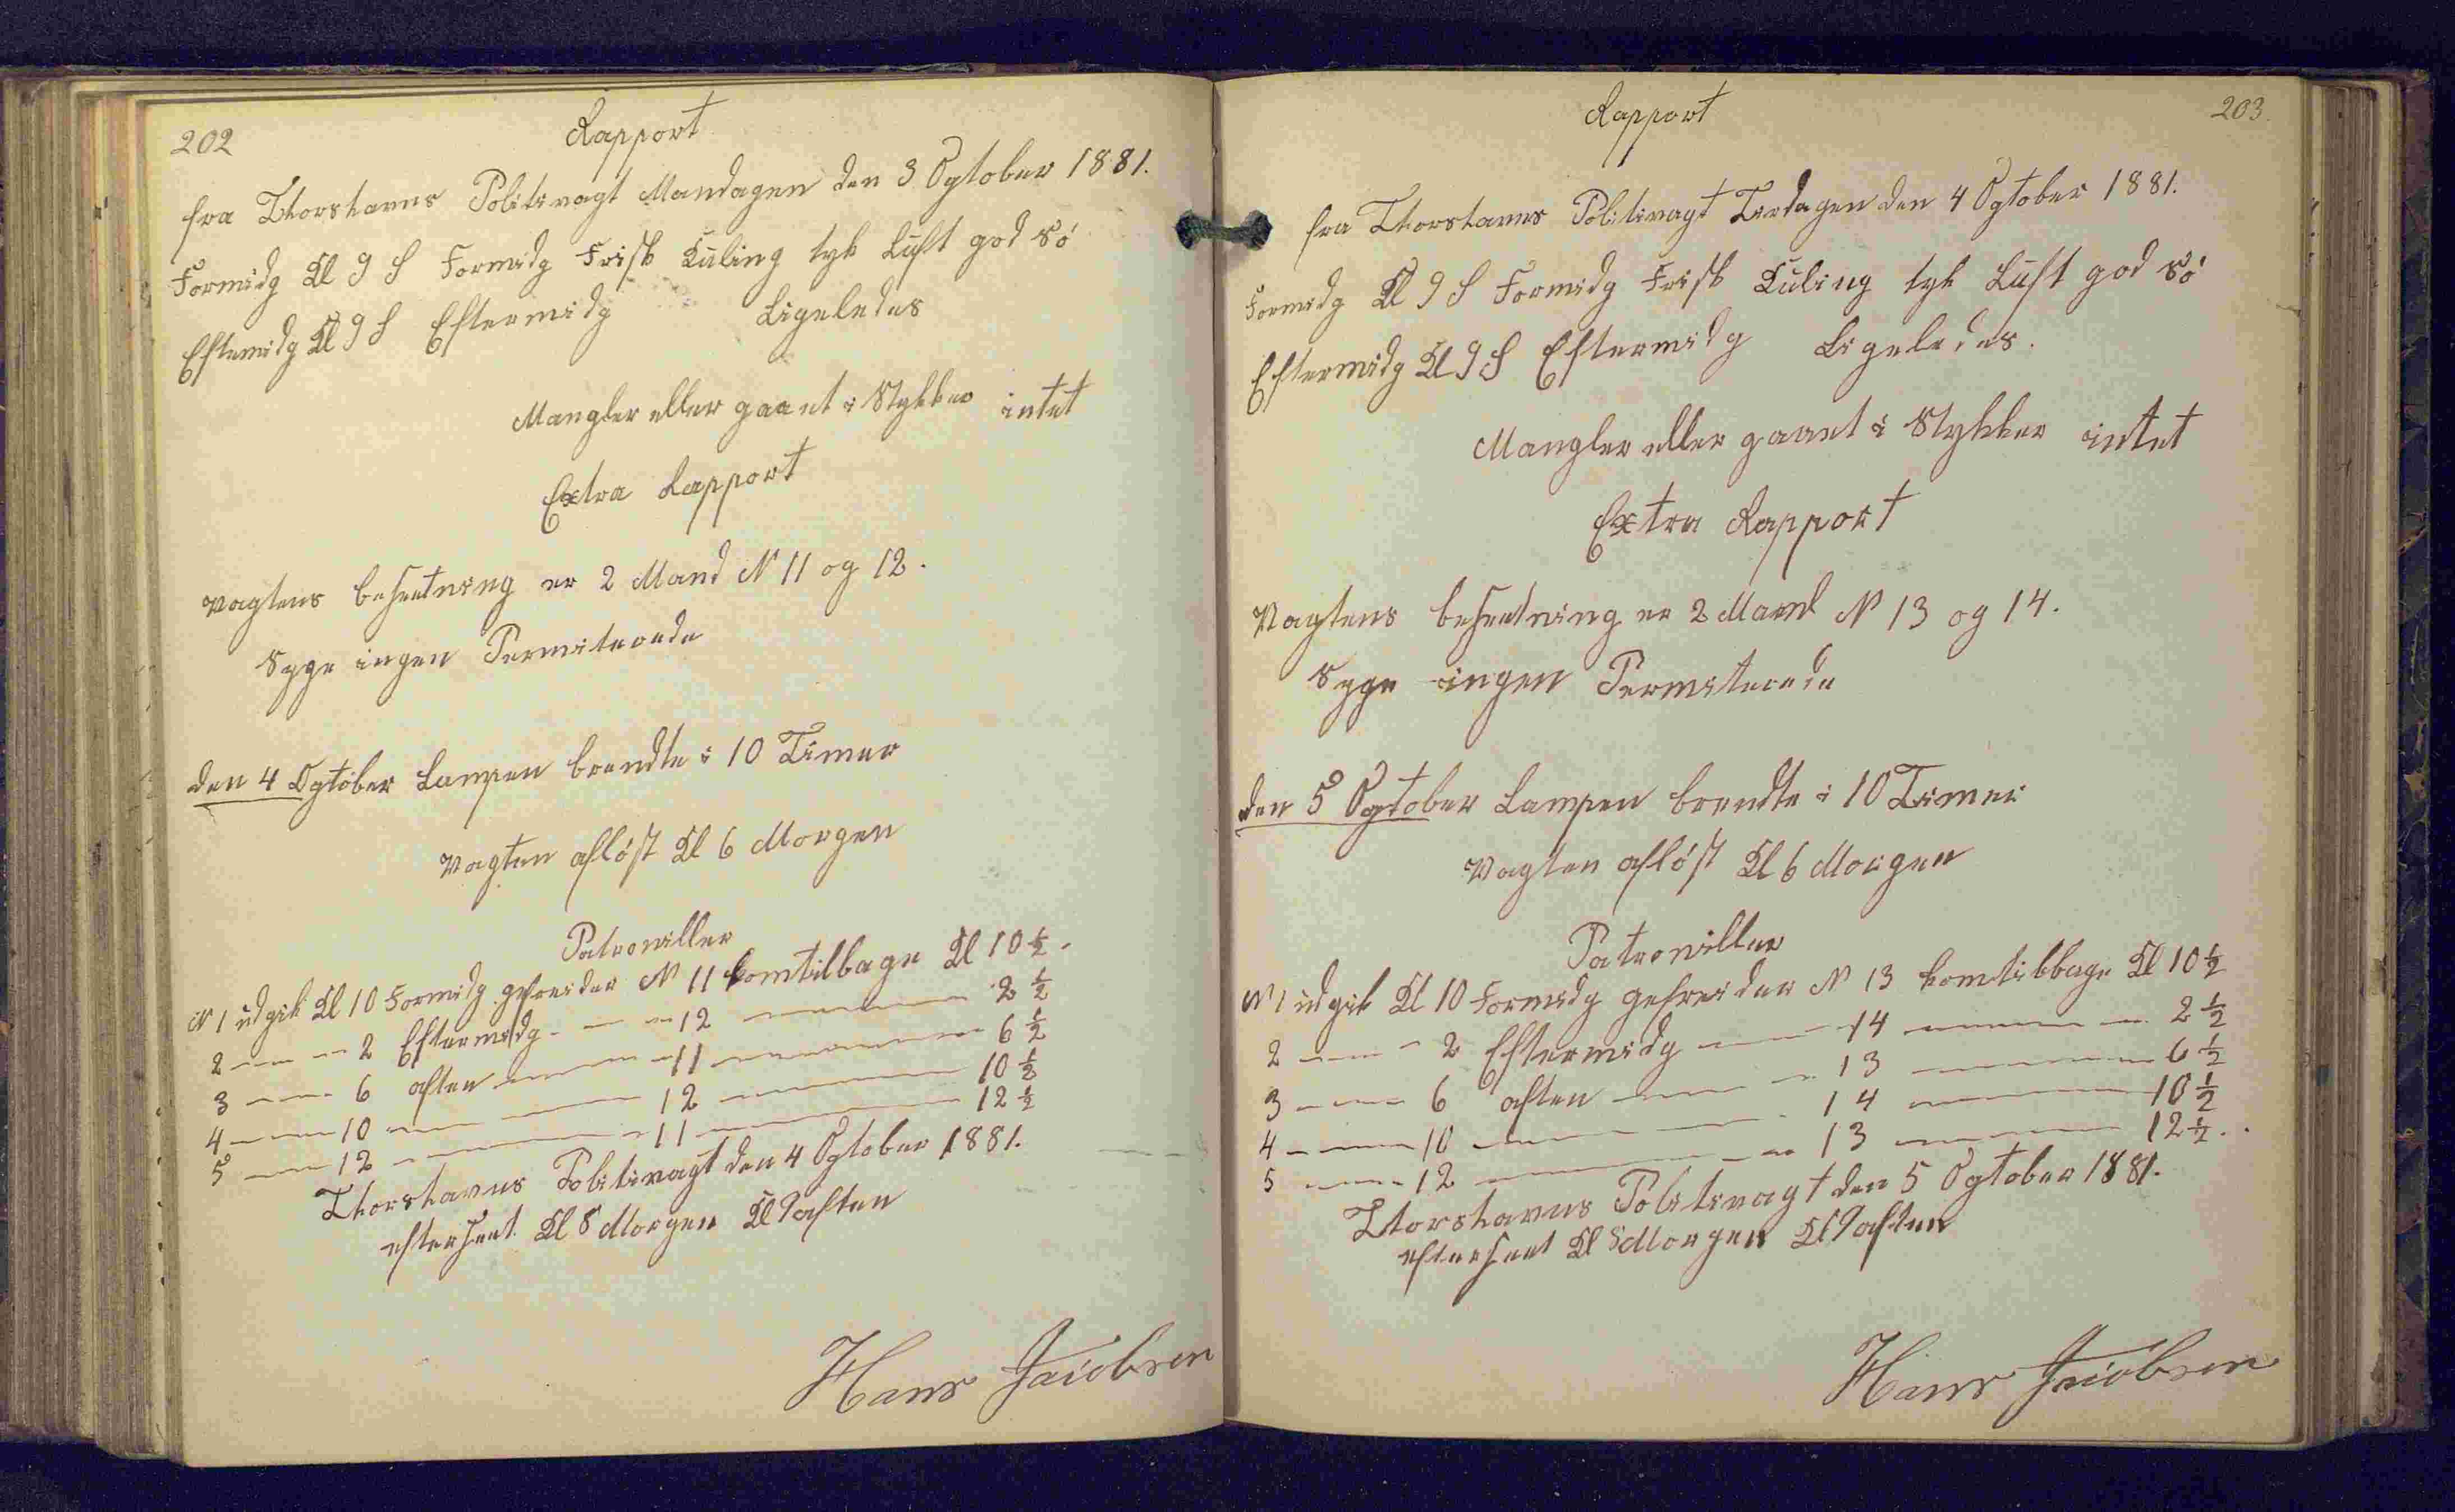 202
Rapport
fra Thorshavns Politivagt Mandagen den 3 Ogtober 1881.
Formidg Kl 9 S Formidg Frisk Kuling tyk Luft god Sö
Eftemidg Kl 9 S Eftermidg Ligeledes
Mangler eller gaaet i Stykker intet
Extra Rapport
Vagtens besætning er 2 Mand N 11 og 12.
Syge ingen Permiterede
den 4 Ogtober Lampen brendte i 10 Timer
Vagten aflöst Kl 6 Morgen
Patroviller
N 1 udgik Kl 10 Formidg gefreider N 11 komtilbage Kl 10 ½.
2 — — 2 Eftermidg — — 12 — 2 ½
3 — — 6 aften — — 11 — 6 ½
4 — — 10 — — 12 — 10 ½
5 — — 12 — — 11 — 12 ½
Thorshavns Politivagt den 4 Ogtober 1881.
efterseet Kl 8 Morgen Kl 9 aften
Hans Jacobsen
203.
Rapport
fra Thorshavns Politivagt Tirdagen den 4 Ogtober 1881.
Formidg Kl 9 S Formidg Frisk Kuling tyk Luft god Sö
Eftermidg Kl 9 S Eftermidg Ligeledes.
Mangler eller gaaet i Stykker intet
Extra Rapport
Vagtens besætning er 2 Mand N 13 og 14.
Syge ingen Permiterede
den 5 Ogtober Lampen brendte i 10 Timer
Vagten aflöst Kl 6 Morgen
Patroviller
N 1 udgik Kl 10 Formidg gefreider N 13 komtilbage Kl 10 ½
2 — — 2 Eftermidg — — 14 — 2 ½
3 — — 6 aften — — 13 — 6 ½
4 — — 10 — — 14 — 10 ½
5 — — 12 — — 13 — 12 ½.
Thorshavns Politivagt den 5 Ogtober 1881.
efterseet Kl 8 Morgen Kl 9 aften
Hans Jacobsen